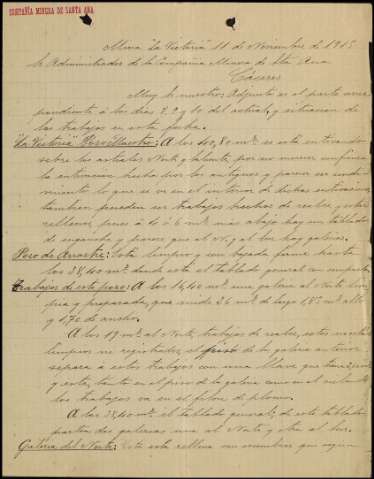 COMPAÑIA MINERA DE SANTA ANA
Mina "La Victoria" 11 de Noviembre de 1915
Sr Administrador de la Compañia Minera de Sta Ana
Cáceres
Muy Sr nuestro: Adjunto es el parte corres
pondiente á los dias 8, 9 y 10 del actual, y situacion de
los trabajos en esta fecha.
"La Victoria" Pozo Maestro: A los 40,80 mts se está entivando
sobre los Norte y Levante, por no merecer confianza
la entivacion hecha por los antiguos y parece ser
lo que se vé en el interior de dichas entivaciones
tambien pueden ser trabajos hechos de realce, y estar
rellenos, pues á 4 ó 6 mts mas abajo hay un tablado
de enganche y parece que al N. y al Sur hay galerias.
Pozo de Arrastre: Está limpio y con bajada firme hasta
los 38,40 mts donde está el tablado general con compuerta
Trabajos de este pozo: A los 14,40 mts una galeria al Norte lim
pia y preparada, que mide 26 mts de largo 1,85 mts alto
y 1,70 de ancho.
A los 19 mts al Norte, trabajos de realce, estos no están
limpios ni registrados, el piso de la galeria anterior
separa á estos trabajos con una llave que
y esta, tanto en el piso de la galeria como en el cielo de
los trabajos va en el filon de plomo.
A los 38,40 mts el tablado general; de este tablado
parten dos galerias una al Norte y otra al Sur.
Galeria del Norte: Esta está rellena